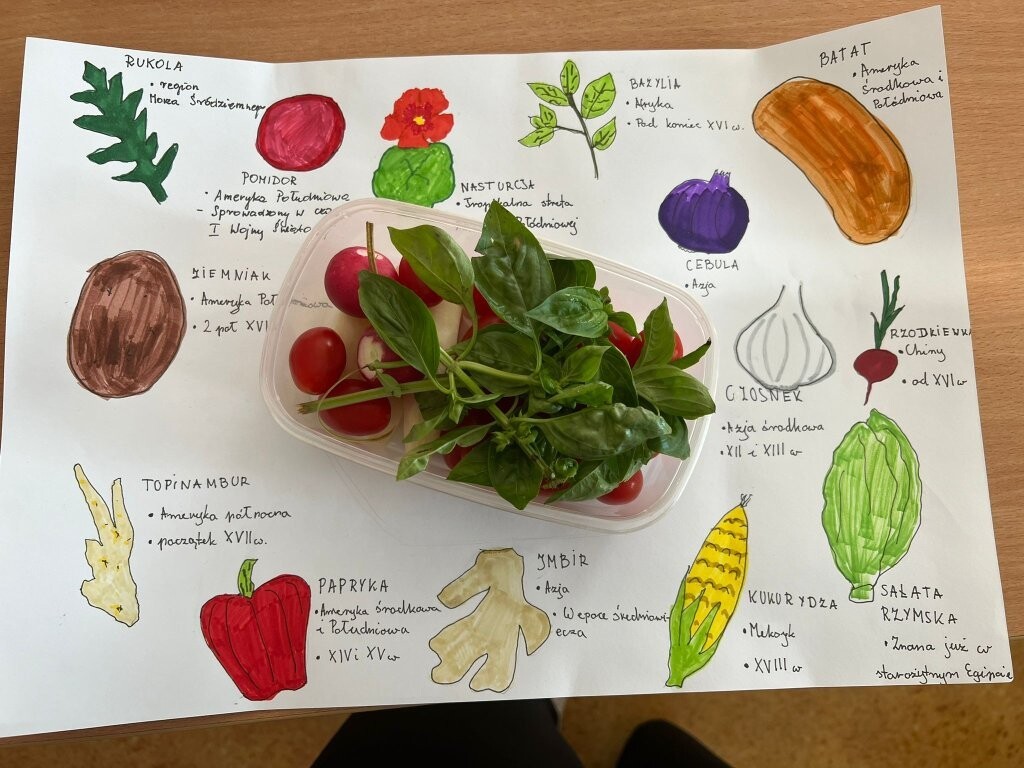 RUKOLA
• region
Morza Śródziemnego
POMIDOR
• Ameryka Południowa
- Sprowadzony w
I Wojny
NASTURCJA
• Tropikalna strefa
BAZYLIA
• Afryka
• Pod koniec XVI w.
BATAT
• Ameryka
Środkowa i
Południowa
CEBULA
• Azja
ZIEMNIAK
• Ameryka
• 2 poł XVI
CZOSNEK
• Azja środkowa
• XII i XIII w
RZODKIEWKA
• Chiny
• od XVI w
TOPINAMBUR
• Ameryka północna
• początek XVII w.
PAPRYKA
• Ameryka środkowa
i Południowa
• XIV i XV w
IMBIR
• Azja
• W epoce średniowi-
ecza
KUKURYDZA
• Meksyk
• XVIII w
SAŁATA
RZYMSKA
• Znana już w
starożytnym Egipcie